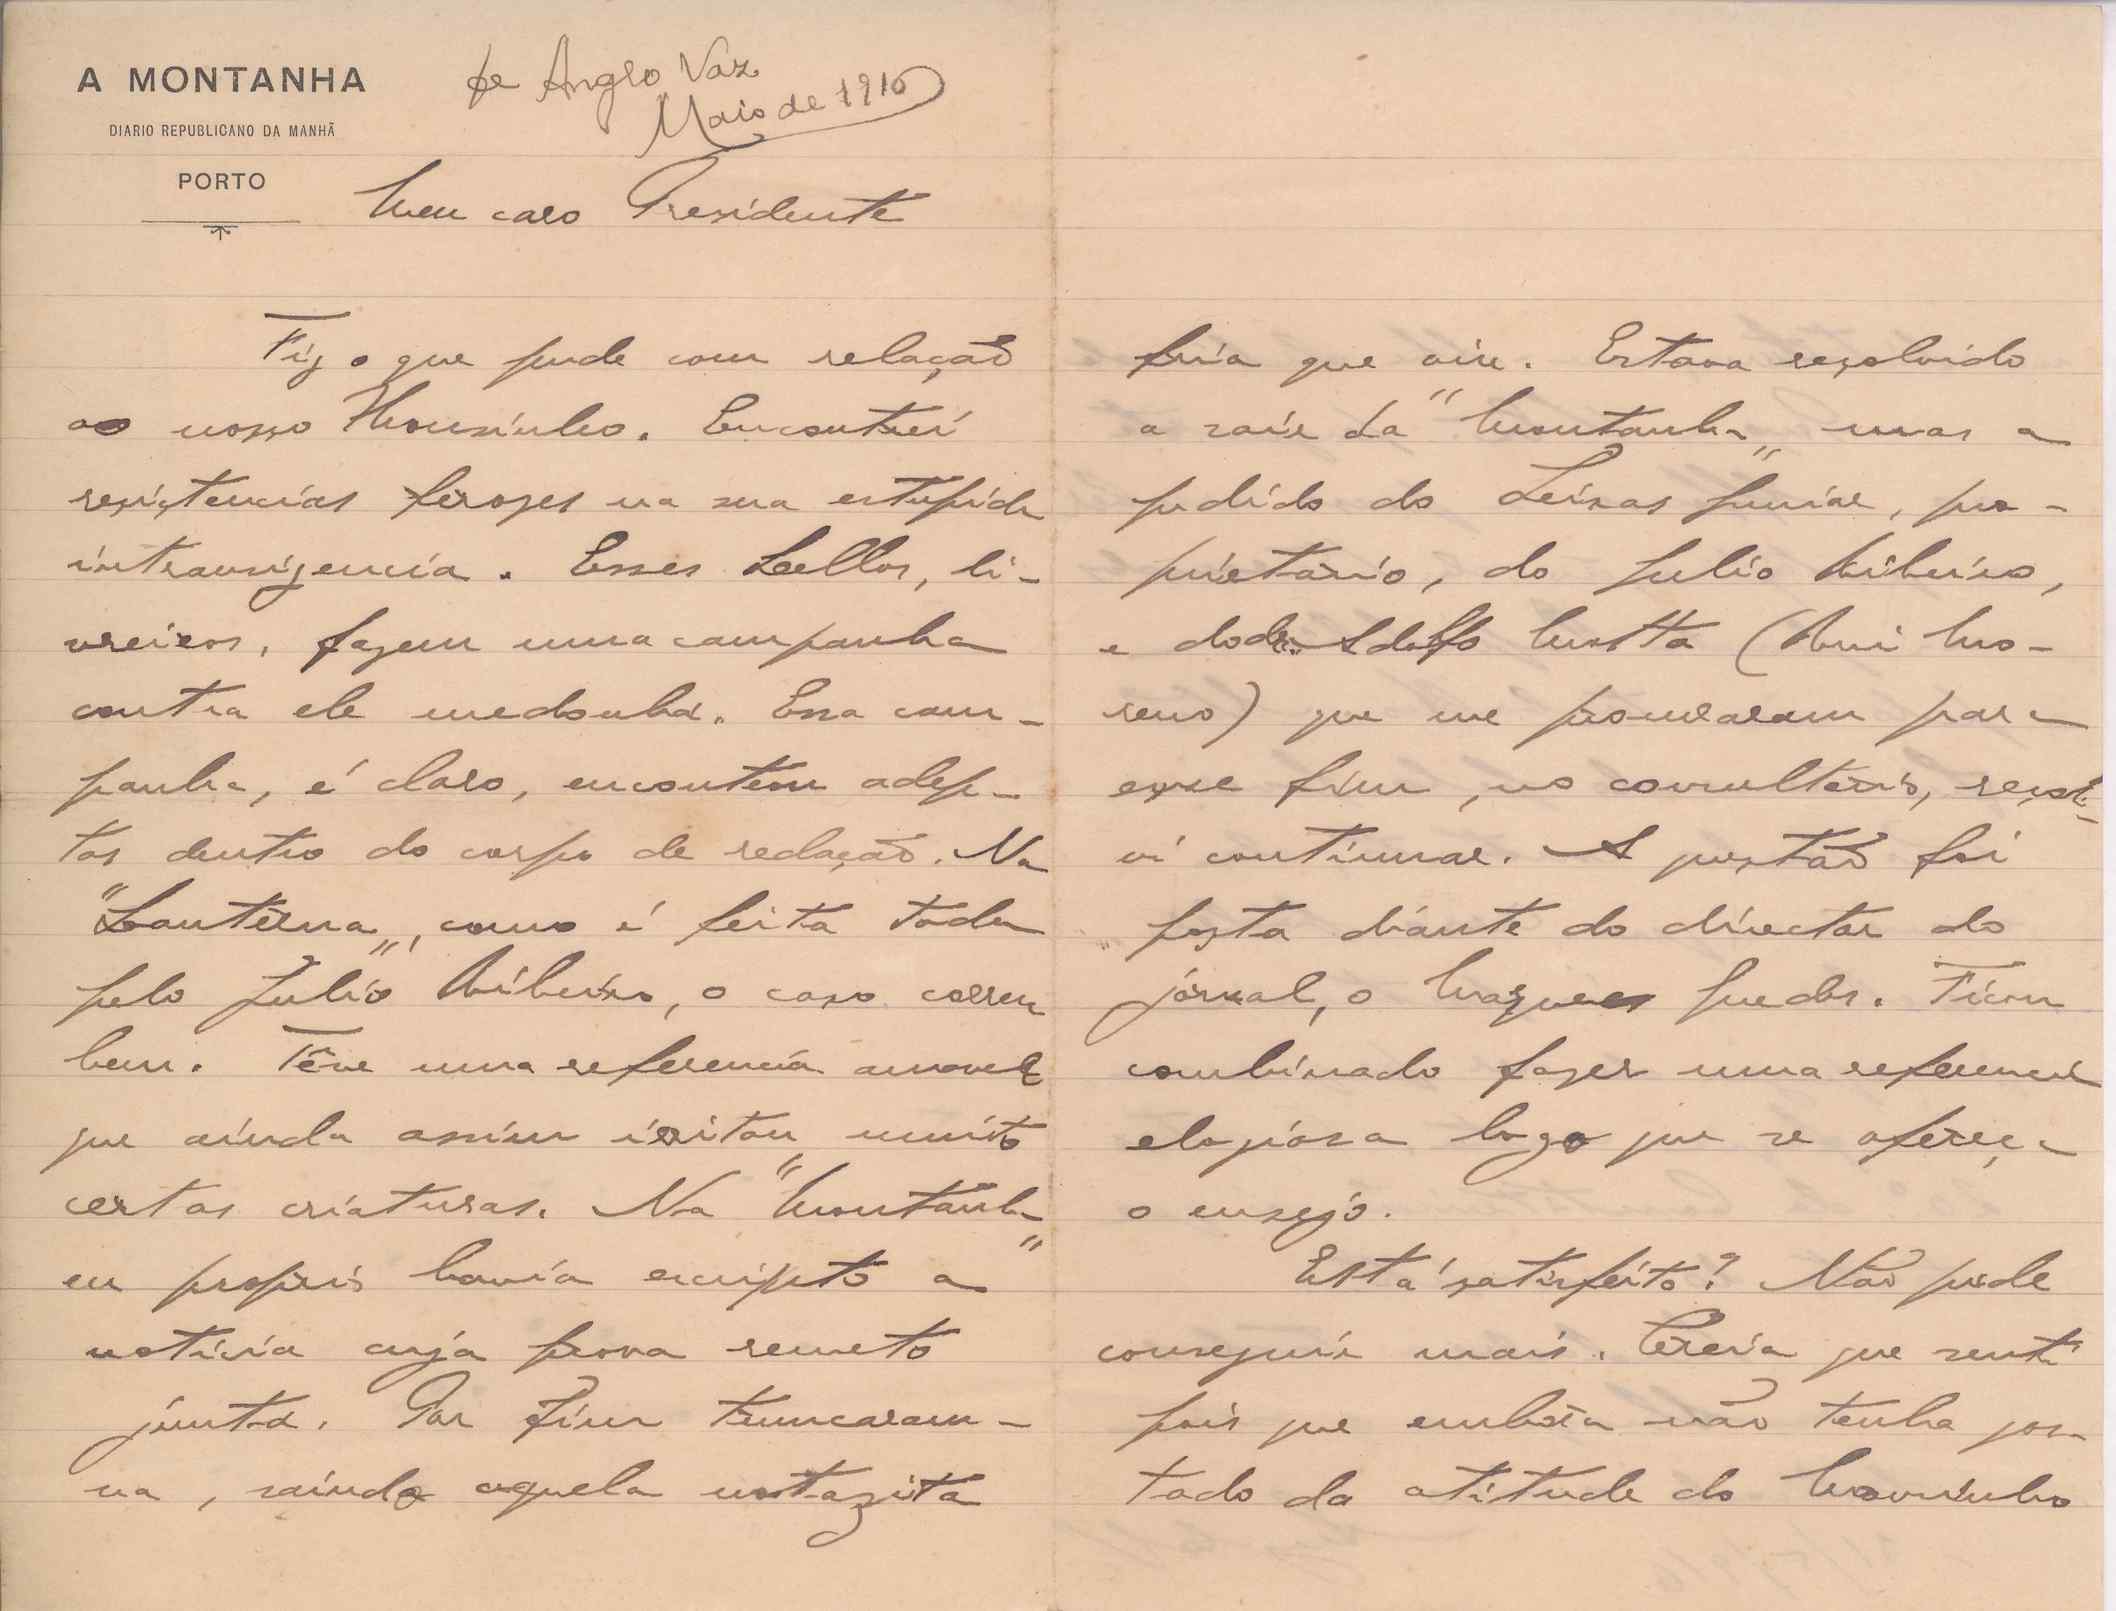 A MONTANHA
DIARIO REPUBLICANO DA MANHÃ
PORTO
de Angelo Vaz
Maio de 1916
Meu caro Presidente
Fiz o que pude com relação
ao nosso Mousinho. Encontrei
resistencias ferozes na sua estupida
intransigencia. Esses Lellos, li-
vreiros, fazem uma campanha
contra ele medonha. Essa cam-
panha, é claro, encontrou adep-
tos dentro do corpo de redação. Na
"Lanterna", como é feita toda
pelo Julio Ribeiro, o caso correu
bem. Têve uma referencia amavel
que ainda assim irritou muito
certas criaturas. Na "Montanha"
eu proprio havia escripto a
noticia cuja prova remeto
junta. Por fim truncaram-
na, saindo aquela notazita
fria que viu. Estava resolvido
a sair da "Montanha" mas a
pedido do Seixas Junior, pro-
prietario, do Julio Ribeiro,
e do dr. Adolfo Motta (Rui Mo-
reno) que me procuraram para
esse fim, no consultorio, resol-
vi continuar. A questão foi
posta diante do director do
jornal, o Marques Guedes. Ficou
combinado fazer uma referencia
elogiosa logo que se ofereça
o ensejo.
Está satisfeito? Não pude
conseguir mais. Creia que senti
pois que embora não tenha gos-
tado da atitude do Mousinho